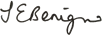 J E Benign